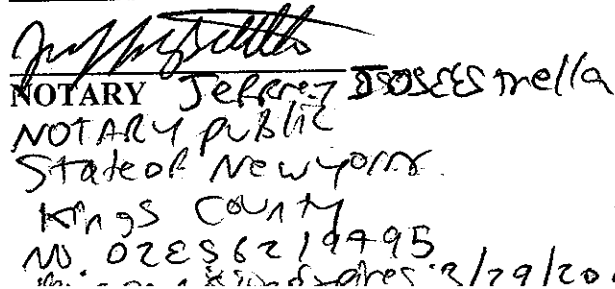 NOTARY Jeffrey
NOTARY public
State of New york
Kings County
NO. 02ES6219495
expires 3/29/20